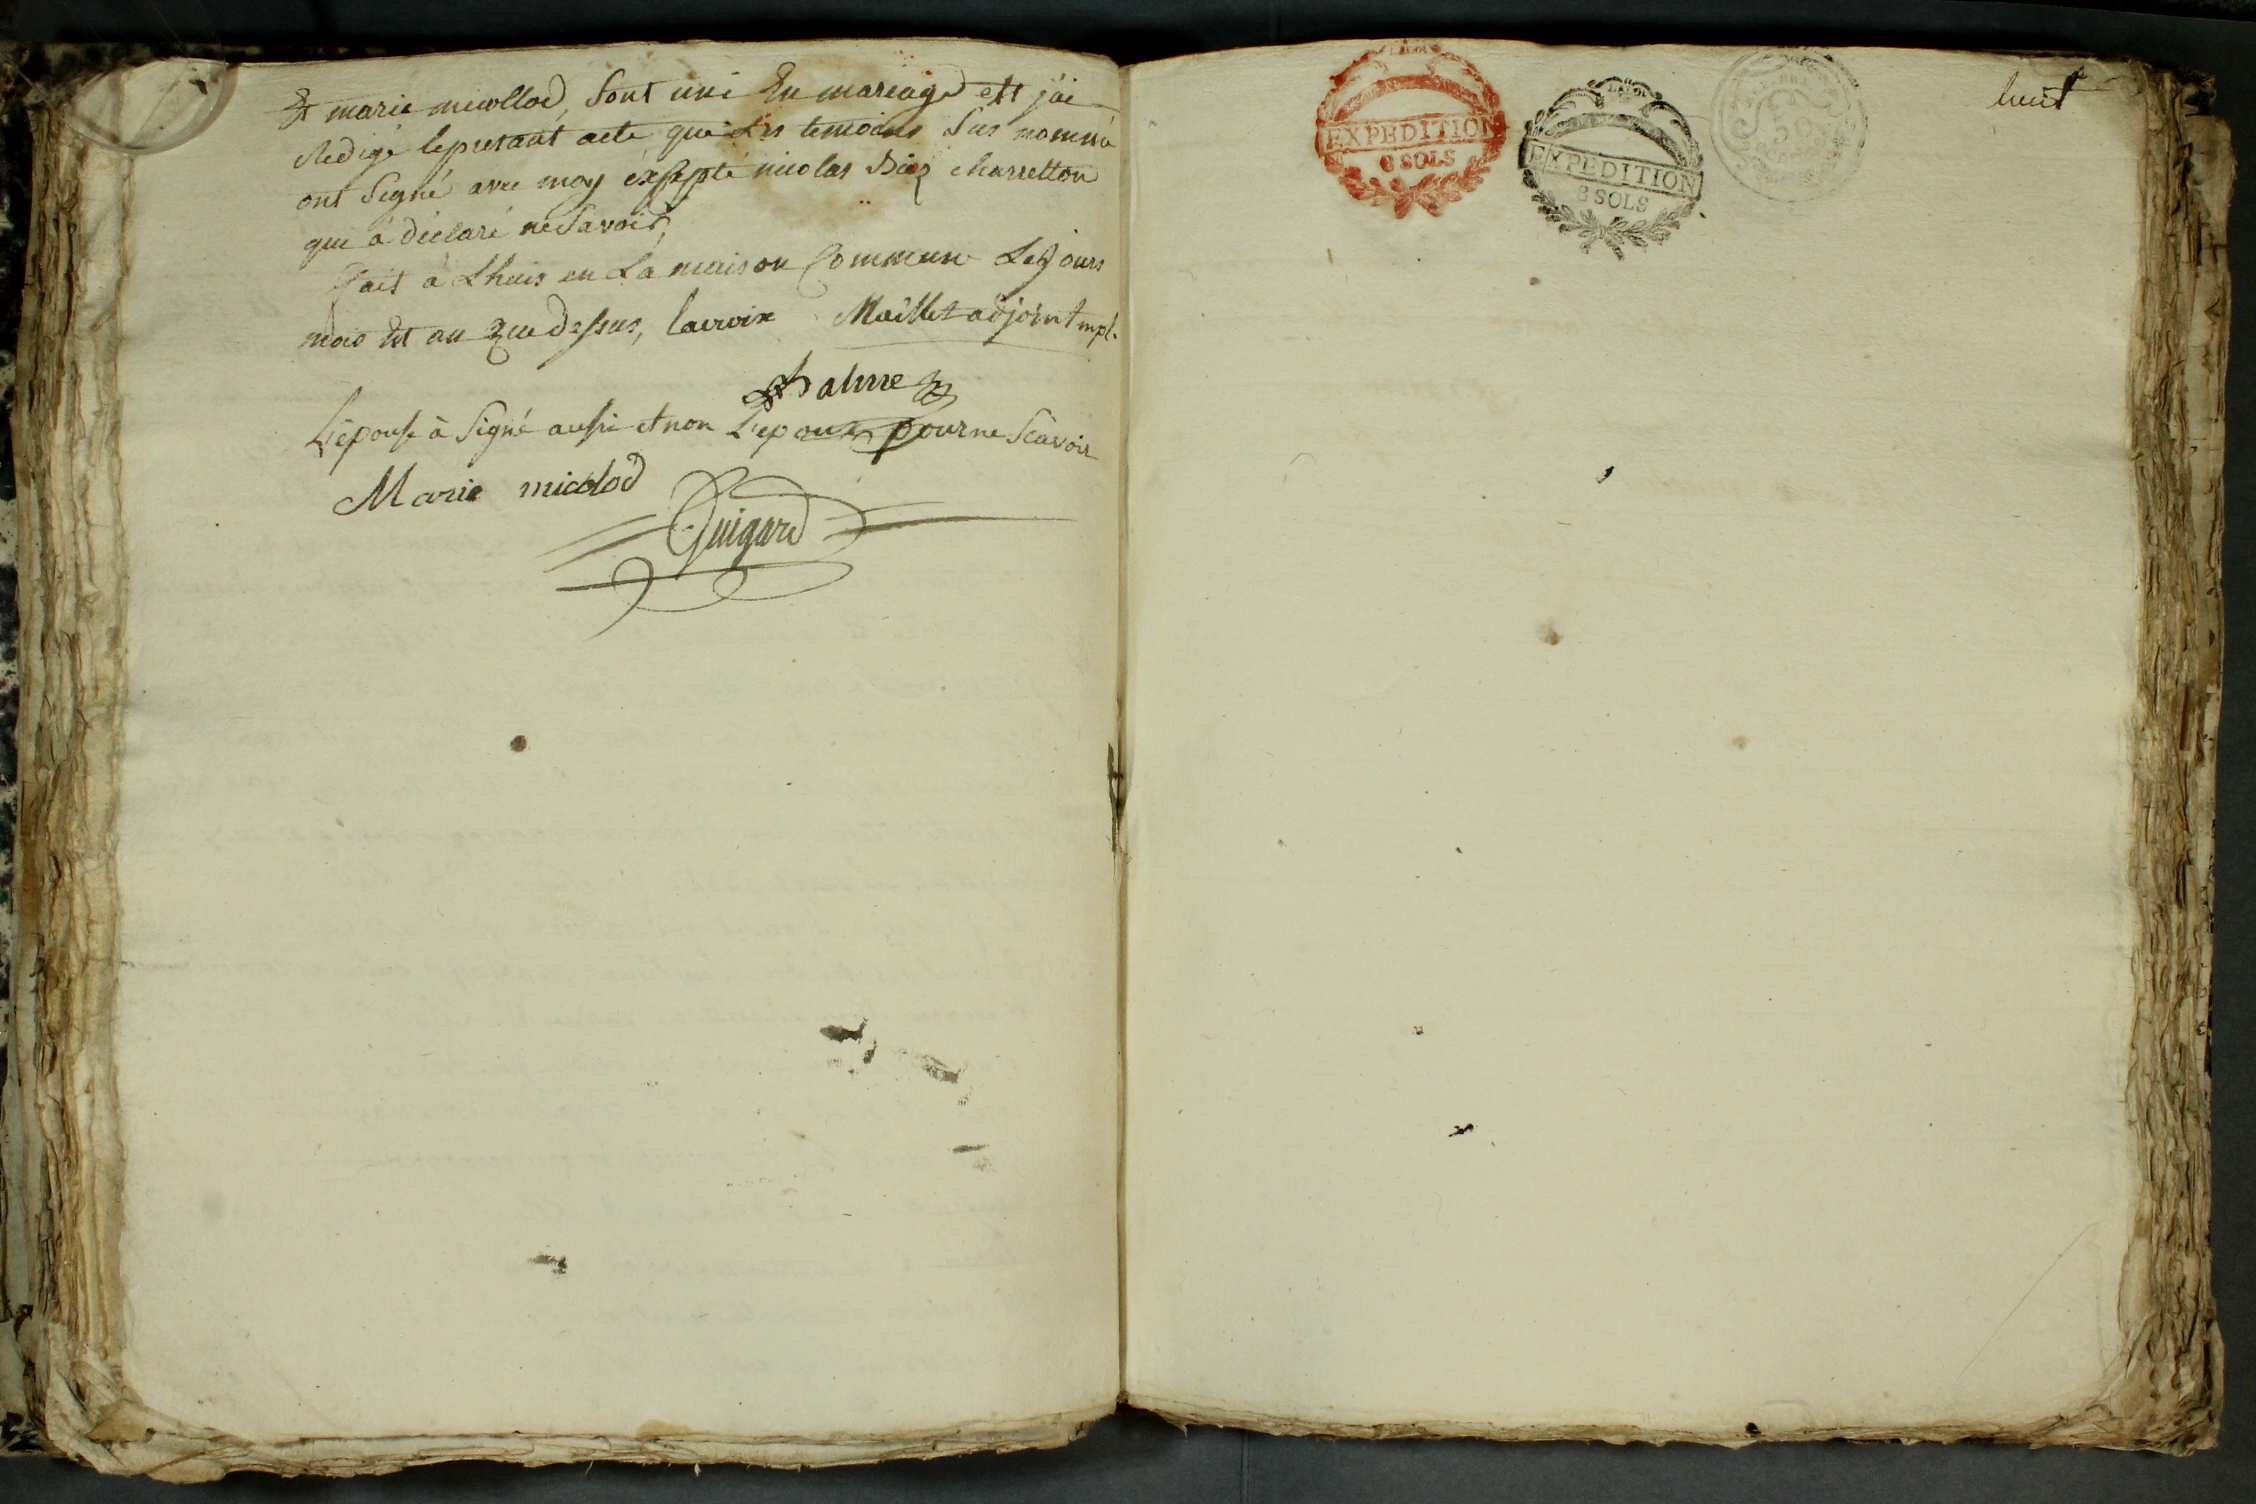 Et marie micollod, Sont uni En mareage ett j'ai
Redigé lepresant acte que Les temoins Sus nommé
ont Signé avec moy éxsepté nicolas Diez charretton
qui à déclaré nesavoir,
Fait à Lhuis en La maison Commune Les jours
mois Et an que dessus, lacroix Maillet adjoint mpl.
Balme
L'épouse à Signé aussi et non L'epoux pour ne Scavoir
Marie micolod
Guigard
EXPEDITION
6 SOLS
EXPEDITION
6 SOLS
huit